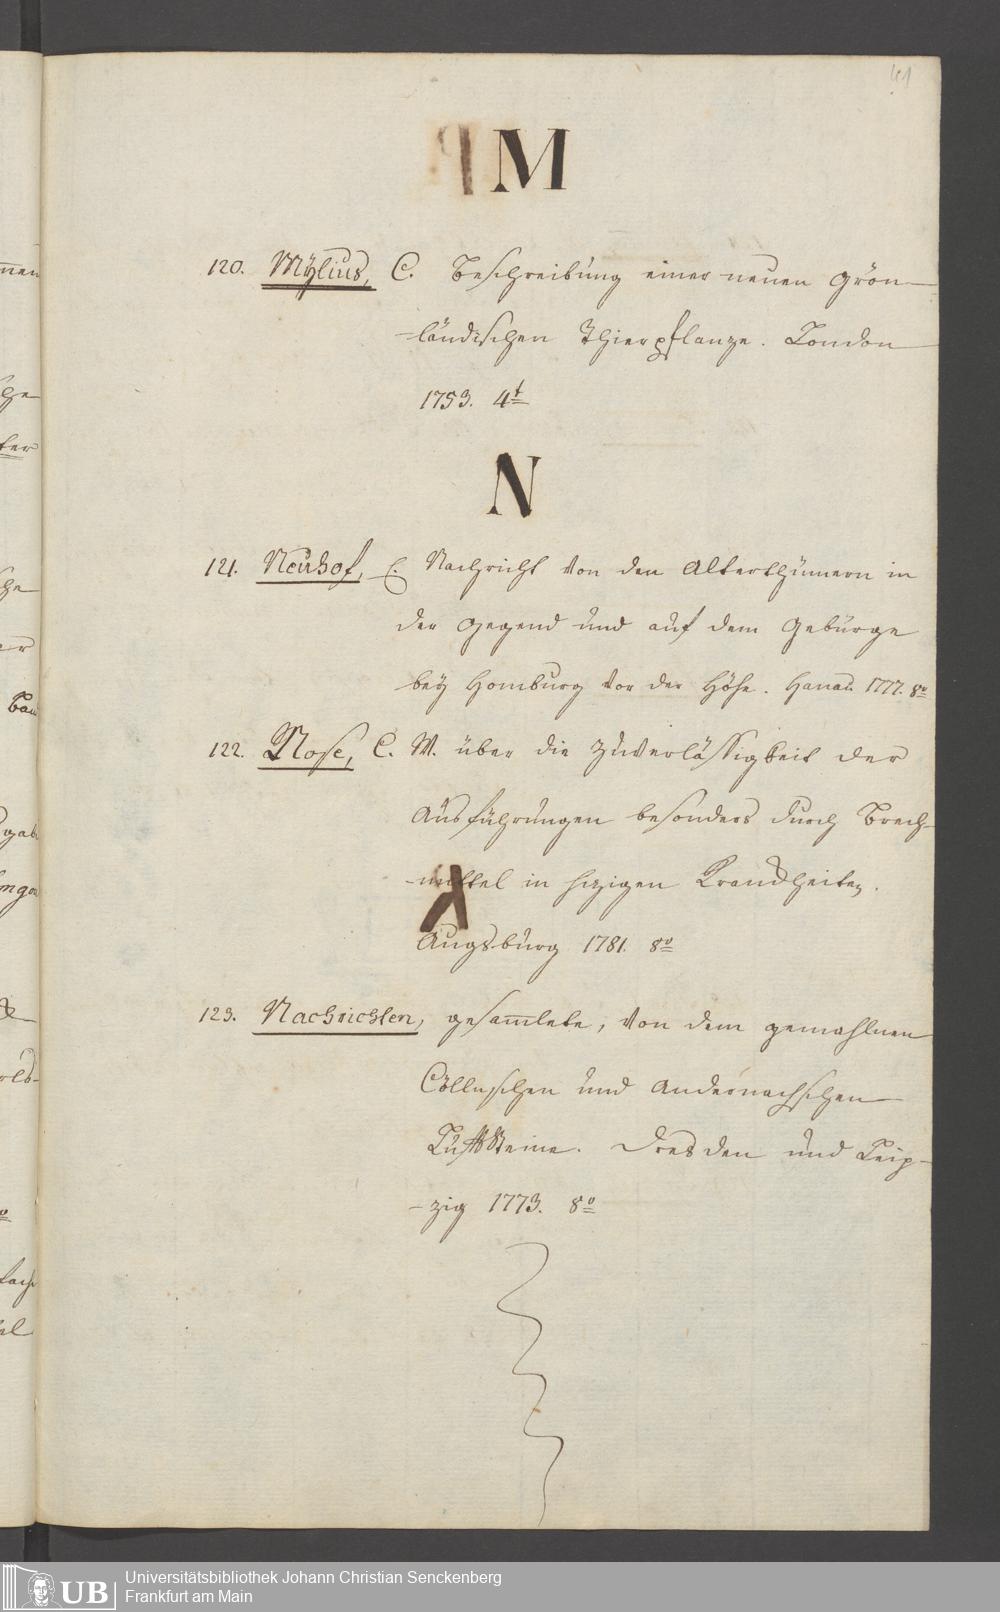 41
M
120. Mÿlius, C. Beschreibung einer neuen Grön-
-ländischen Thierpflanze. London
1753. 4t
N
121. Neuhof, E. Nachricht von den Alterthümern in
der Gegend und auf dem Gebürge
beÿ Homburg vor der Höhe. Hanau 1777. 8o
122. Nose, C. W. über die Zuverlässigkeit der
Ausführungen besonders durch Brech-
-mittel in hizigen Krankheiten.
Augsburg 1781. 8o
123. Nachrichten, gesammlete, von dem gemahlnen
Cöllnischen und Andernachschen
Tuffsteine. Dresden und Leip-
-zig 1773. 8o
UB
Universitätsbibliothek Johann Christian Senckenberg
Frankfurt am Main